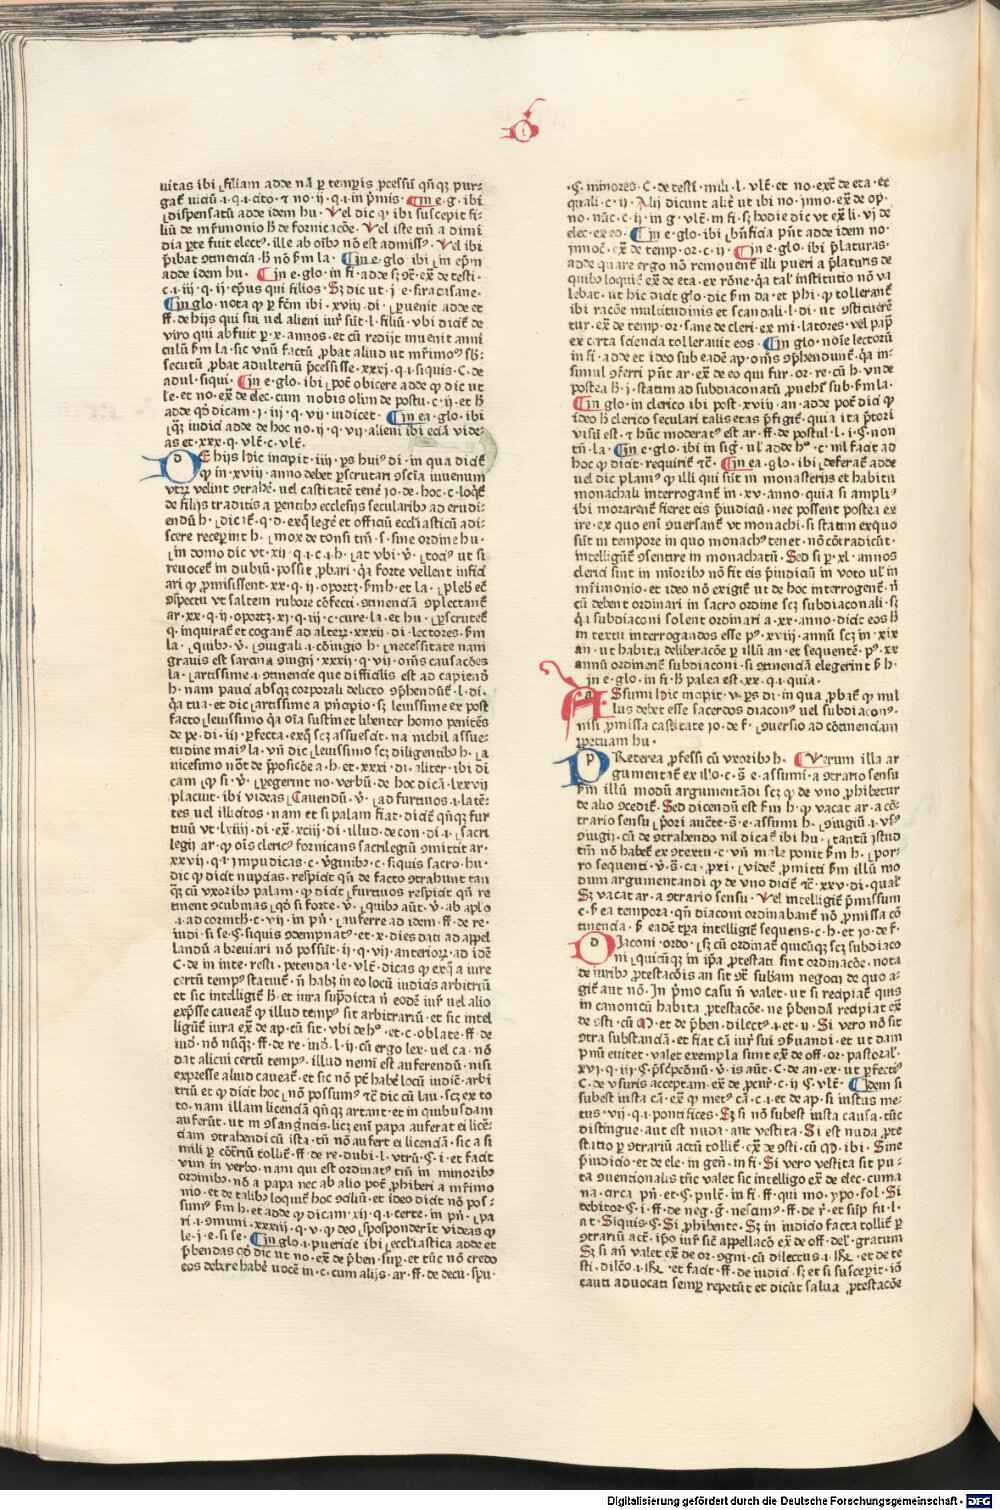 D
uitas ibi filiam adde nā ꝑ temꝑis ꝓcessū qn̄qꝫ pur-
gat̄ uiciū .1. q. 1. cito. ⁊ no. ij. q. 1. in p̄mis. In e. g. ibi
dispensatū adde idem hu. Vel dic ꝙ ibi suscepit fi-
liū de mr̄imonio h̄ de fornicacōe. Vel iste tm̄ a dimi
dia ꝑte fuit elect⁹. ille ab oībꝰ nō est admissꝰ. Vel ibi
ꝓbibat ꝯtinencia h̄ nō ẜm la. In e. glo ibi in epm̄
adde idem hu. In e. glo. in fi. adde
c. 1. iii. q. ij. ep̄us qui filios. Sꝫ dic ut. j. e. si racisane.
In glo. nota ꝙ ꝑ fcm̄ ibi. xviij. di. ꝓuenit adde et
ff. de hijs qui sui vel alieni iur̄ sūt. l. filiū. vbi dicit̄ de
viro qui abfuit ꝑ. x. annos. et cū redijt inuenit anni
culū ẜm la. sic vnū factū ꝓbat aliud ut mr̄imoꝰ
secutū ꝓbat adulteriū p̄cessisse. xxxj. q. 1. si quis. C. de
adul. si qui. In e. glo. ibi pōt obicere adde ꝙ dic ut
le. et no. ex̄ de elec. cum nobis olim de postu. c. ij. et h̄
adde qd̄ dicam. j. iij. q. vij. iudicet. In ea. glo. ibi
iudici adde de hoc no. ij. q. vij. alieni ibi eciā vide-
as et. xxx. q. vlt̄. c. vlt̄.
DE hijs hic incipit. iiij. ꝑs huiꝰ di. in qua dicit̄
ꝙ in. xviij. anno debet ꝑscrutari ꝯsciā iuuenum
utꝝ velint ꝯtrahe. uel castitatē tene. jo. de. hoc. c. loqit̄
de filijs traditis a ꝑentibꝰ ecclesijs secularibꝰ ad erudi-
endū h. dicit̄. q. d. exq̄ legē et officiū eccl̄iasticū adi-
scere recepint h. mox de tonsi tm̄. s. sine ordine hu.
in domo dic vt. xij. q. 1. c. 1. h. at vbi. v̄. tociꝰ ut si
reuocet̄ in dubiū. possit ꝓbari. qꝛ forte vellent infici
ari ꝙ ꝓmisissent. xx. q. ij. oportꝫ. ẜm h. et la. plebē ec̄
ꝯspectu vt saltem rubore cōfecti. ꝯtinenciā ꝯplectant̄
ar. xx. q. ij. oportꝫ. xj. q. iij. c. cure. la. et hu. ꝑscrutet̄
q. inquirat̄ et cogant̄ ad alterꝝ. xxxij. di. lectores. ẜm
la. quibꝰ. v̄. ꝯiugali. 1. cōiugio h. necessitate nam
grauis est sarcina ꝯiugij. xxxij. q. vij. om̄s causacōes
la. artissime. 1. ꝯtinencie que difficilis est ad capienō
h. nam pauci absqꝫ corporali delicto ꝯphendūt̄. l. di.
qꝛ tua. et dic artissime a pͥncipio. sꝫ leuissime ex post
facto leuissimo qꝛ oīa sustinet libenter homo penitēs
de pe. di. iij. ꝑfecta. exq̄ scꝫ assuescit. na nichil assue-
tudine maiꝰ la. vn̄ dic leuissimo scꝫ diligentibꝰ h. a
vicesimo nōt̄ de p̄posicōe a. h. et. xxxi. di. aliter. ibi di
cam ꝙ si. v̄. pegerint no. verbū. de hoc dicā. lxxvij
placuit. ibi videas Cauendū. v̄. ad furtiuos. 1. latē-
tes uel illicitos. nam et si palam fiat. dicit̄ qn̄qꝫ fur
tiuū vt. lxiiij. di. ex̄. xciij. di. illud. de con. di. 1. sacri
legij ar. ꝙ oīs clericꝰ fornicans sacrilegiū ꝯmittit ar.
xxvij. q. 1. impudicas. c. v̄gībꝰ. c. si quis sacro. hu.
dic ꝙ dicit nupcias. respicit qn̄ de facto ꝯtrahunt tan
qꝫ cū vxoribꝰ palam. ꝙ dicit furtiuos respicit qn̄ re
tinent ꝯcubinas qd̄ si forte. v̄. quibꝰ aūt. v̄. ab ap̄lo
.1. ad corinth. c. vij. in pn̄. auferre ad idem. ff. de re-
iudi. si se. C. si quis ꝯdempnatꝰ. et. x. dies dati ad appel
landū abreuiari nō possūt. ij. q. vij. anteriorꝝ. ad idē
C. de in inte. resti. petenda. le. vlt̄. dicas ꝙ exq̄ a iure
certū tempꝰ statuit̄. n̄ habꝫ in eo locū iudicis arbitriū
et sic intelligit̄ h̄. et iura sup̄dicta n̄ eodē iur̄ uel alio
exp̄sse caueat̄ ꝙ illud tempꝰ sit arbitrariū. et sic intel
ligūt̄ iura ex̄ de ap. cū sit. vbi de hͦ. et. c. oblate. ff. de
iud. nō nūqꝫ. ff. de re. iud. l. ij. cū ergo lex. uel ca. nō
dat alicui certū tempꝰ. illud nemī est auferendū. nisi
expresse aliud caueat̄. et sic nō pt̄ habē locū iudic̄ arbi
triū et ꝙ dicit hoc nō possumꝰ tc̄ dic cū lau. scꝫ ex to
to. nam illam licenciā qn̄qꝫ artant. et in quibusdam
auferūt. ut in ꝯsangͥneis. licꝫ enī papa auferat ei lice-
ciam ꝯtrahendi cū ista. tn̄ nō aufert ei licenciā. sic a si
mili ꝑ cōtͥriū tollit̄. ff. de re. dubi. l. vtrū. C. j. et facit
vim in verbo. nam qui est ordinatꝰ tm̄ in minoribꝰ
ordinibꝰ. nō a papa nec ab alio pōt ꝓhiberi a mr̄imo
nio. et de talibꝰ loquit̄ hoc ꝯciliū. et ideo dicit nō pos-
sumꝰ ẜm h. et adde ꝙ dicam. xij. q. 1. certe. in pn̄. pa
ri. 1. ꝯmuni. xxxiij. q. v. ꝙ deo sposponderīt videas ꝙ
le. j. e. si se. In glo. 1. puericie ibi eccl̄iastica adde et
p̄bendas qd̄ dic ut no. ex̄ de p̄ben. suꝑ. et tūc nō credo
eos debere habē vocē in. c. cum alijs. ar. ff. de decu. spu-
.C. minores. C. de testi. mili. l. vlt̄. et no. ext̄ de eta. et
quali. c. ij. Alij dicunt alit̄ ut ibi no. jnno. ex̄ de op.
no. nūc. c. ij. in g. vlt̄. in fi. sꝫ hodie dic vt ex̄ li. vj. de
elec. ex eo. In e. glo. ibi bn̄ficia pn̄t adde idem no.
innoc̄. ex̄ de temp. or. c. ij. In e. glo. ibi p̄laturas.
adde quare ergo nō remouent̄ illi pueri a p̄laturis de
quibꝰ loquit̄ ex̄ de eta. ex rōne. qꝛ tal̄ institutio nō va
lebat. ut hic dicit glo. dic ẜm da. et phi. ꝙ tollerant̄
ibi racōe multitudinis et scandali. l. di. ut ꝯstitueret̄
tur. ex̄ de temp. or. sane de cleri. ex mi. latores. vel pap̄
ex certa sciencia tollerauit eos. In glo. noīe lectorū
in fi. adde et ideo sub eadē ap. om̄s ꝯphendunt̄. qꝛ in-
simul ꝯferri pn̄t ar. ex̄ de eo qui fur. or. re. cū h. vnde
postea h. j. statim ad subdiaconatū ꝓueht̄ sub. ẜm la.
In glo. in clerico ibi post. xviij. an. adde pōt dici ꝙ
ideo h̄ clerico seculari talis etas p̄figit̄. quia ita p̄tori
visū est. ⁊ hūc moderatꝰ est ar. ff. de postul. l. j. C. non
tn̄. la. In e. glo. ibi in sig. uͥ adde hͦ. c. nil facit ad
hoc ꝙ dicit. requirit̄ tc̄. In ea. glo. ibi deferat̄ adde
uel dic planiꝰ ꝙ illi qui sūt in monasterijs et habitu
monachali interrogant̄ in. xv. anno. quia si ampliꝰ
ibi morarent̄ fieret eis p̄iudiciū. nec possent postea ex
ire. ex quo enī ꝯuersant̄ vt monachi. si statim exquo
sūt in tempore in quo monachꝰ tenet. nō cōtradicūt.
intelligūt̄ ꝯsentire in monachatū. Sed si ꝑ. xl. annos
clerici sint in mīoribꝰ nō fit eis p̄iudiciū in voto ul̄ in
mr̄imonio. et ideo nō exigit̄ ut de hoc interrogent̄. n̄
cū debent ordinari in sacro ordine scꝫ subdiaconali. sꝫ
qꝛ subdiaconi solent ordinari a. xx. anno. dicit eos h̄
in textu interrogandos esse pꝰ. xviij. annū scꝫ in. xix
an. ut habita deliberacōe ꝑ illū an. et sequentē. pꝰ. xx
annū ordinent̄ subdiaconi. si ꝯtinenciā elegerint ẜ h.
jn e. glo. in fi. h̄ palea est. xx. q. 1. quia.
ASsumi hic incipit. v. ꝑs di. in qua ꝓbat̄ ꝙ nul
lus debet esse sacerdos diaconꝰ uel subdiaconꝰ.
nisi ꝓmissa castitate jo. de f. ꝯuersio ad cōtinenciam
ꝑpetuam hu.
PReterea ꝓfessi cū vxoribꝰ h. Verum illa ar
gumentat̄ ex illo. c. s̄ e. assumi. a ꝯtrario sensu
ẜm illū modū argumētādi scꝫ ꝙ de vno ꝓhibetur
de alio ꝯcedit̄. Sed dicendū est ẜm h. ꝙ vacat ar. a cō-
trario sensu. p̄ori auct̄e. s̄. e. assumi h. ꝯiugiū. 1. vsꝰ
ꝯiugij. cū de ꝯtrahendo nil dicat̄ ibi hu. tantū istud
tm̄ nō habet̄ ex ꝯtextu. c. vn̄ male ponit ẜm h. por-
ro sequenti. v̄. s̄. ca. ꝓxi. videt̄ ꝓmitti ẜm illū mo
dum argumentandi ꝙ de vno dicit̄ tc̄. xxv. di. qual̄
Sꝫ vacat ar. a ꝯtrario sensu. Vel intelligit̄ p̄missum
c. ẜ ea tempora. qn̄ diaconi ordinabant̄ nō ꝓmissa cō
tinencia. ẜ eadē tp̄a intelligit̄ sequens. c. h. et jo. de f.
DIaconi. ordo. sꝫ cū ordinat̄ quicūqꝫ scꝫ subdiaco
ni quicūqꝫ in ip̄a ꝓtestati sint ordinacōe. nota
de iuribꝰ ꝓtestacōis an sit ꝯt̄ subam negocij de quo a-
git̄ aut nō. In pͥmo casu n̄ valet. ut si recipiat̄ quis
in canonicū habita ꝓtestacōe. ne p̄bendā recipiat ex̄
de ꝯsti. cū M. et de p̄ben. dilectꝰ. 1. et. ij. Si vero nō sit
ꝯtra substanciā. et fiat cā iur̄ sui ꝯseruandi. et ut dam
pnū euitet. valet exempla sunt ex̄ de off. or. pastoral̄.
xvj. q. iij. C. pscͥpcōnū. v̄. is aūt. C. de an. ex. ut ꝑfectꝰ
C. de vsuris acceptam. ex̄ de ꝓcur̄. c. ij. C. vlt̄. Idem si
subest iusta cā. ex̄ ꝙ metꝰ cā. c. 1. et de ap. si iustus me-
tus. vij. q. 1. pontifices. Sꝫ si nō subest iusta causa. tūc
distingue. aut est nuda. aut vestita. Si est nuda ꝓte
statio ꝑ ꝯtrariū actū tollit̄. ex̄ de ꝯsti. cū M. ibi. Sine
p̄iudicio. et de ele. in gen̄. in fi. Si vero vestita sit pu-
ta ꝯuentionalis tūc valet sic intelligo ex̄ de elec. cuma
na. circa pn̄. et. C. pnlt̄. in fi. ff. qui mo. ypo. sol. Si
debitor. C. 1. ff. de neg. g. nesciusꝰ. ff. de r̄. et sūp. fu. l.
at. Si quis. C. Si ꝓhibente. Sꝫ in iudicio facta tollit̄ ꝑ
ꝯtrariū act̄. ipo iur̄ sic̄ appellacō ex̄ de off. del̄. gratum
Sꝫ si an̄ valet ex̄ de or. ꝯgni. cū dilectus. 1. Rn̄. et de te
sti. dilcō. 1. Rn̄. et facit. ff. de iudici. sꝫ et si susceꝑit. iō
cauti aduocati semꝑ repetūt et dicūt salua ꝓtestacōe
Digitalisierung gefördert durch die Deutsche Forschungsgemeinschaft - DFG